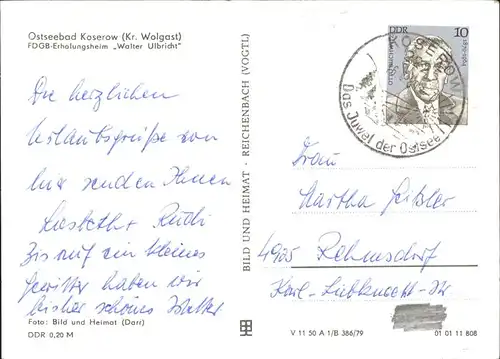 Ostseebad Koserow (Kr. Wolgast)
FDGB-Erholungsheim „Walter Ulbricht"
Die herzlichen
Urlaubsgrüße von
hier senden Ihnen
Lisbeth + Rudi
Bis auf ein kleines
Gewitter haben wir
bisher schönes Wetter
Foto: Bild und Heimat (Darr)
DDR 0,20 M
BILD UND HEIMAT · REICHENBACH (VOGTL)
DDR 10
KOSEROW
Das Juwel der Ostsee
Frau
Martha
4905 Rehmsdorf
Karl-Liebknecht-Str
V 11 50 A 1/B 386/79
01 01 11 808